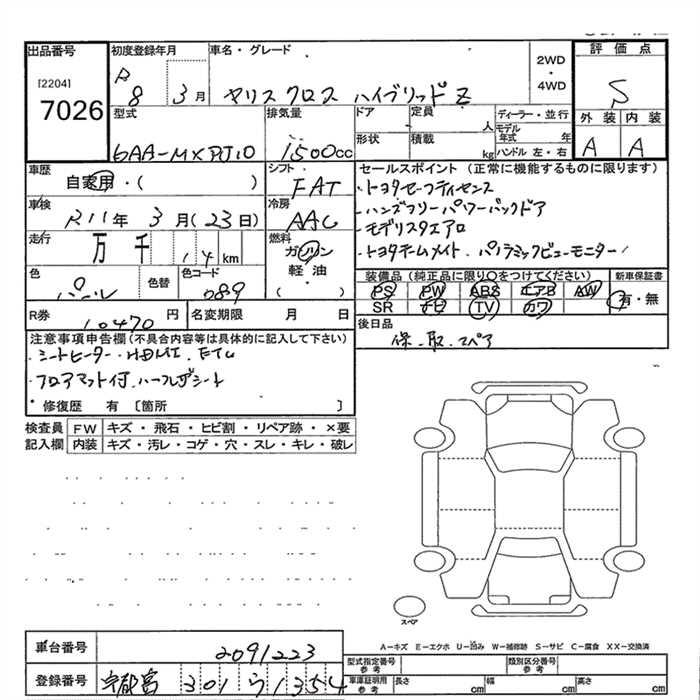 出品番号
[2204]
7026
初度登録年月
R 8 3 月
車名・グレード
ヤリス クロス ハイブリッド Z
2WD
・
4WD
評価点
S
外装 内装
A A
型式
6AA-MXPJ10
排気量
1500cc
ドア
定員
人
形状
積載
kg
ディーラー・並行
モデル年式 年
ハンドル 左・右
車歴
自家用・( )
シフト
FAT
車検
R11年 3月(23日)
冷房
AAC
走行
万 千 14 km
燃料
ガソリン
軽油
( )
色
パール
色替
色コード
089
R券
10470 円
名変期限 月 日
セールスポイント (正常に機能するものに限ります)
・トヨタセーフティセンス
・ハンズフリーパワーバックドア
・モデリスタエアロ
・トヨタチームメイト・パノラミックビューモニター
装備品(純正品に限り○をつけてください)
PS PW ABS エアB AW
SR ナビ TV カワ
新車保証書
有・無
後日品
保.取.スペア
注意事項申告欄(不具合内容等は具体的に記入して下さい)
・シートヒーター・HDMI.ETC
・フロアマット付.ハーフレザーシート
・修復歴 有 〔箇所 〕
検査員記入欄
FW キズ・飛石・ヒビ割・リペア跡・×要
内装 キズ・汚レ・コゲ・穴・スレ・キレ・破レ
スペア
A-キズ E-エクボ U-凹み W-補修跡 S-サビ C-腐食 XX-交換済
車台番号
2091223
登録番号
宇都宮 301 ウ 1354
型式指定番号 参考
類別区分番号 参考
車庫証明用 参考
長さ cm 幅 cm 高さ cm